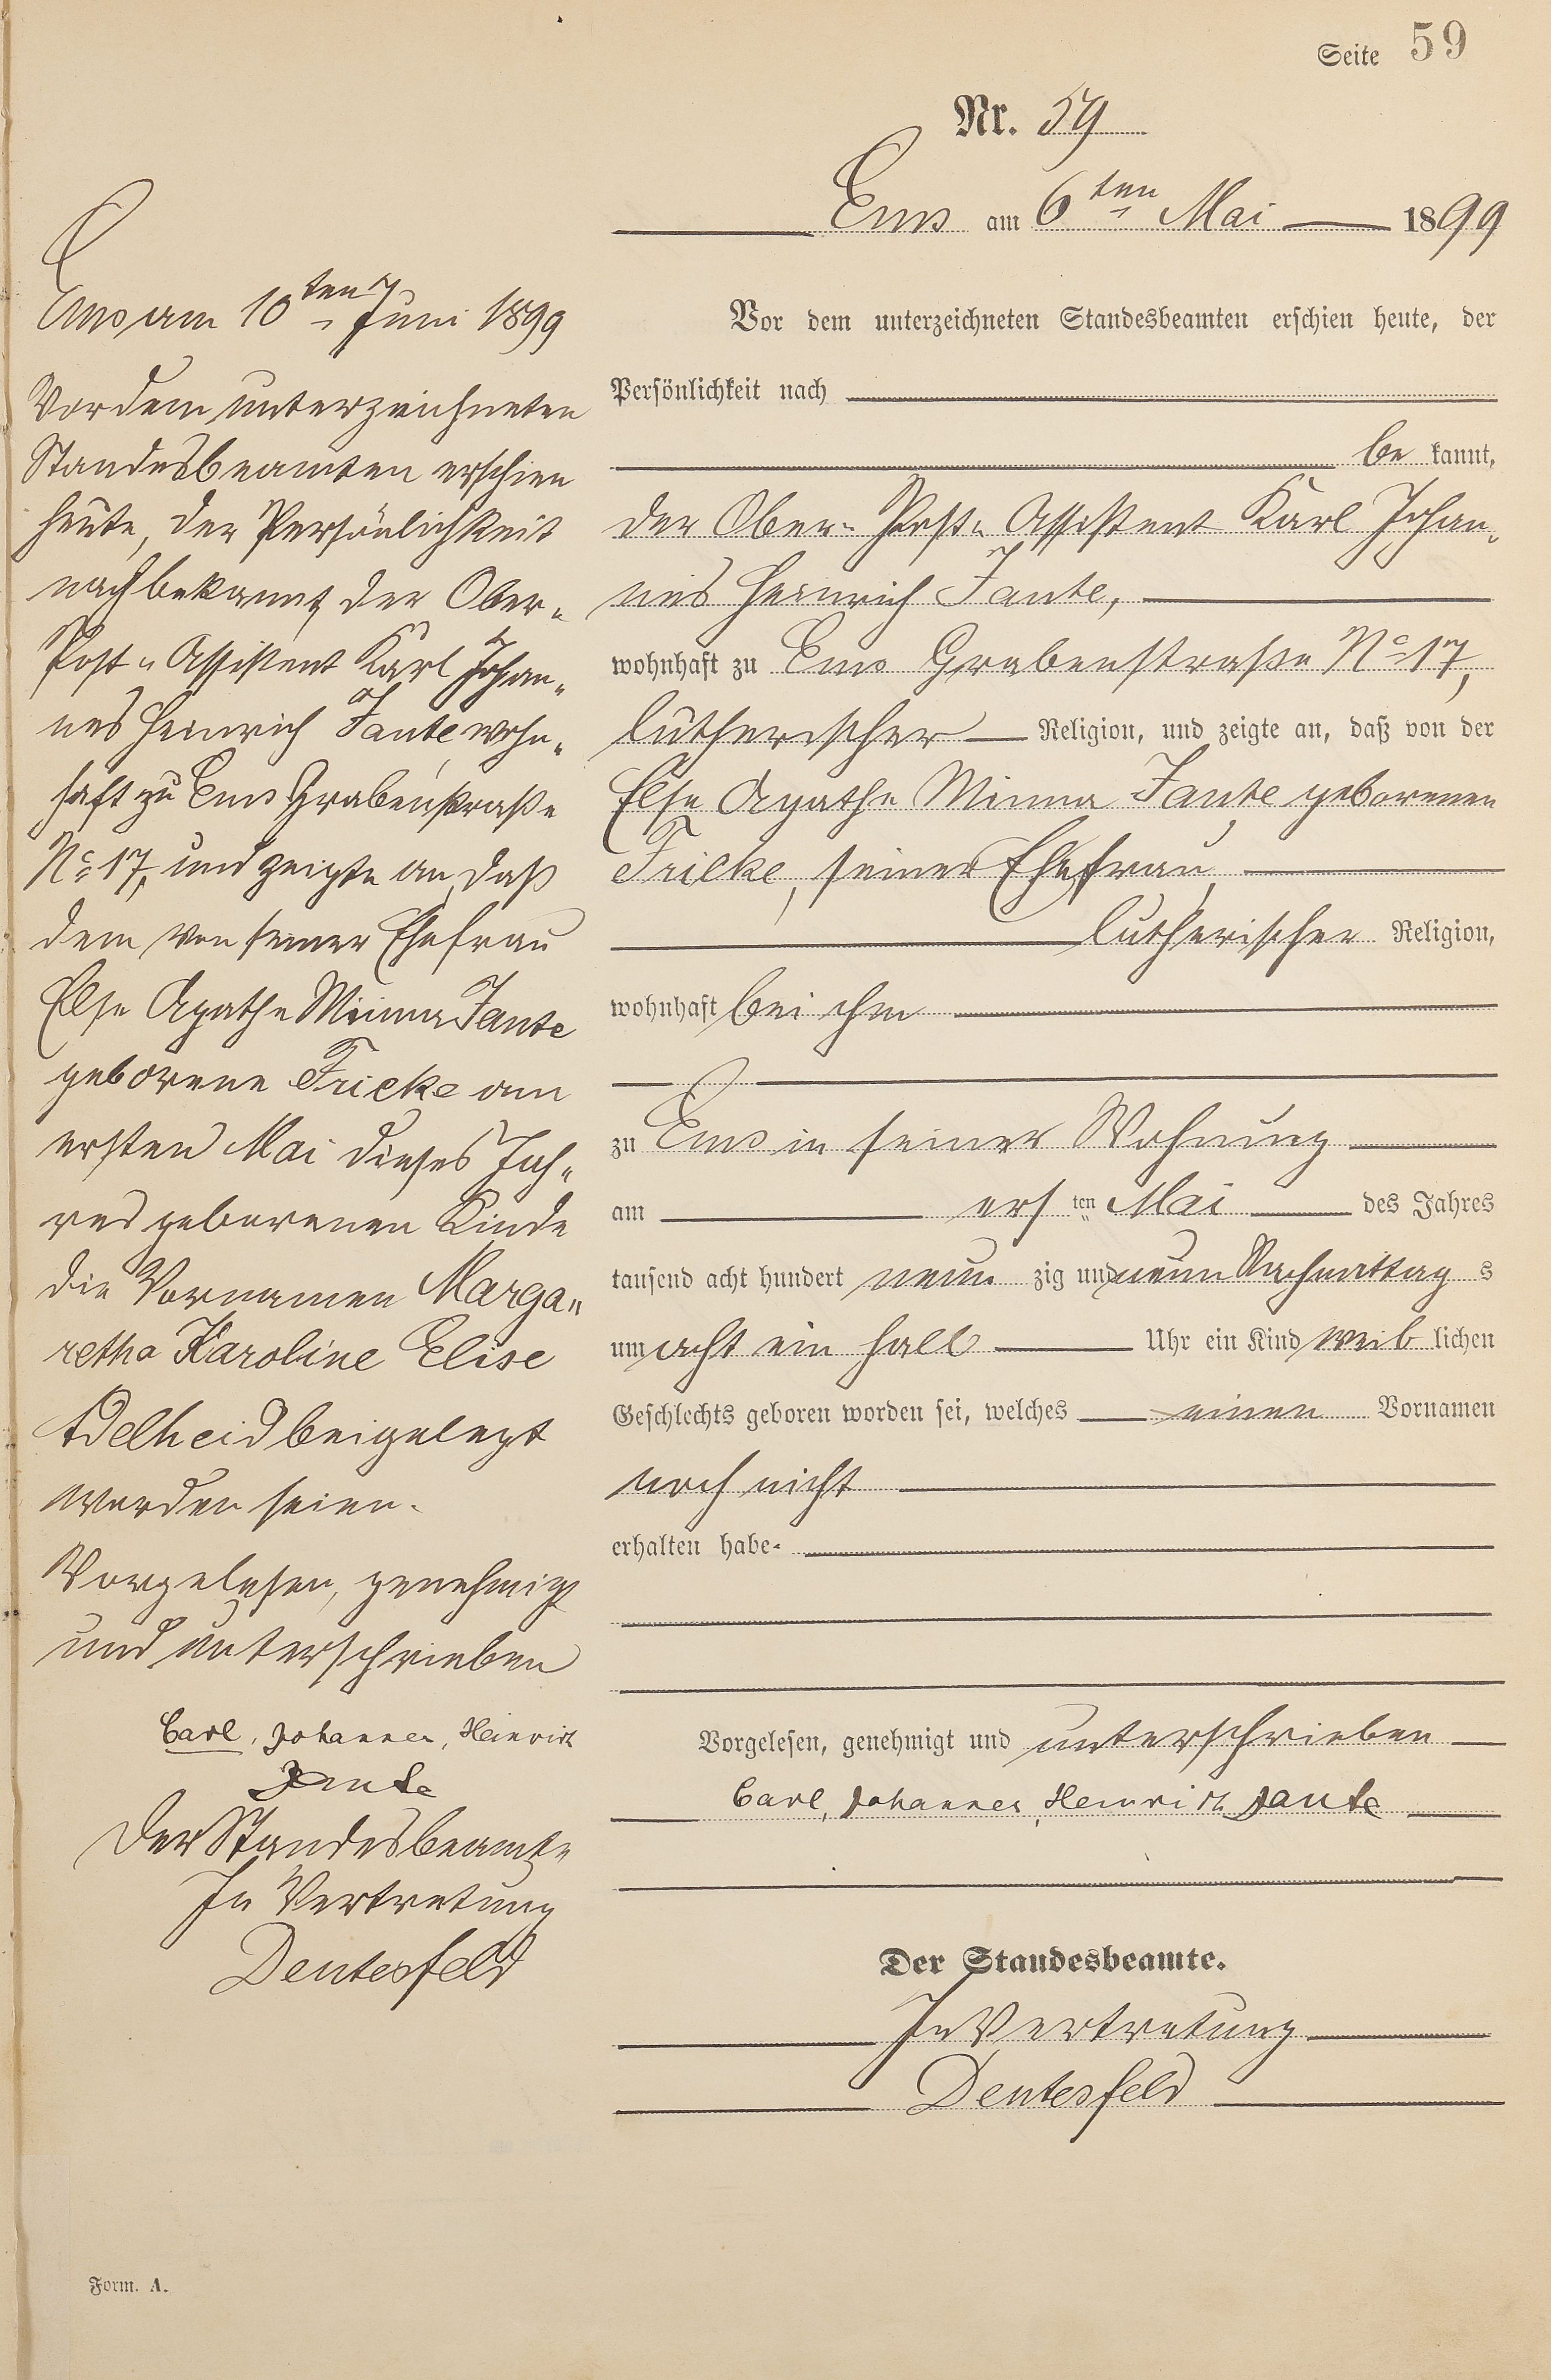 Seite 59
Nr. 59
Ems am 6ten Mai 1899
Vor dem unterzeichneten Standesbeamten erschien heute, der
Persönlichkeit nach
be kannt,
der Ober-Post-Assistent Karl Johan-
nes Heinrich Jante,
wohnhaft zu Ems Grabenstraße No 17,
lutherischer Religion, und zeigte an, daß von der
Else Agathe Minna Jante geborenen
Fricke, seiner Ehefrau,
lutherischer Religion,
wohnhaft bei ihm
zu Ems in seiner Wohnung
am ersten Mai des Jahres
tausend acht hundert neun zig und neun Nachmittag s
um acht ein halb Uhr ein Kind weib lichen
Geschlechts geboren worden sei, welches einen Vornamen
noch nicht
erhalten habe.
Vorgelesen, genehmigt und unterschrieben
Carl, Johannes, Heinrich Jante
Der Standesbeamte.
In Vertretung
Dentesfeld
Ems am 10ten Juni 1899
Vor dem unterzeichneten
Standesbeamten erschien
heute, der Persönlichkeit
nach bekannt, der Ober-
Post-Assistent Karl Johan-
nes Heinrich Jante, wohn-
haft zu Ems Grabenstraße
No 17, und zeigte an, daß
dem von seiner Ehefrau
Else Agathe Minna Jante
geborene Fricke am
ersten Mai dieses Jah-
res geborenen Kinde
die Vornamen Marga-
retha Karoline Elise
Adelheid beigelegt
worden seien.
Vorgelesen, genehmigt
und unterschrieben
Carl, Johannes, Heinrich
Jante
Der Standesbeamte
In Vertretung
Dentesfeld
Form. A.